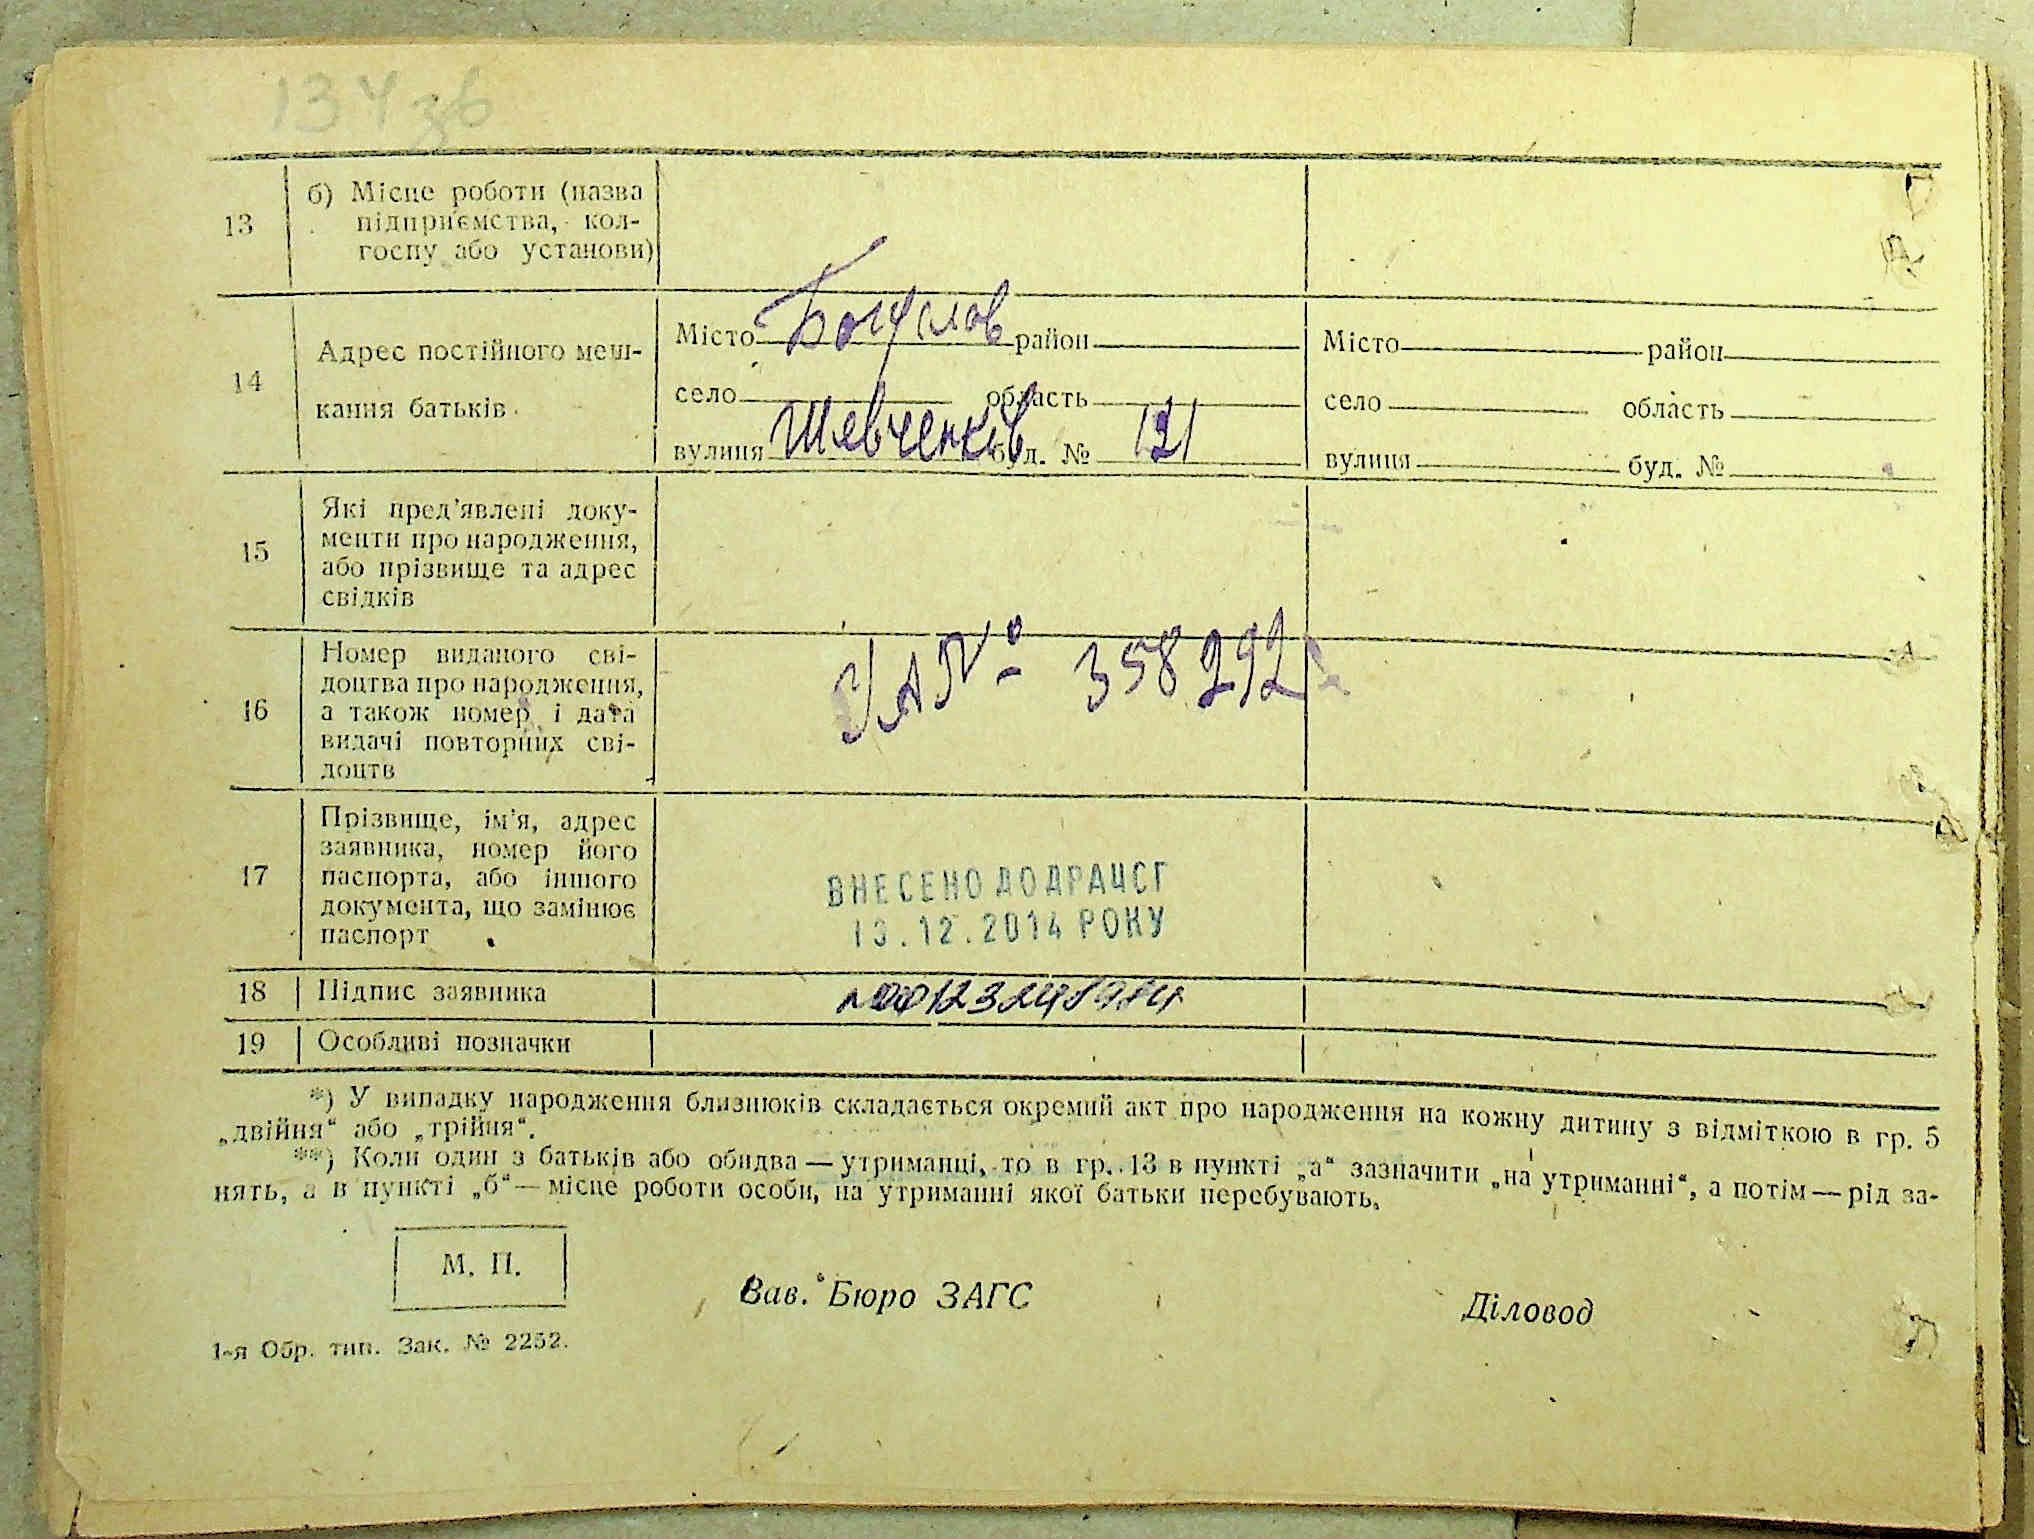 134 зв
13
б) Місце роботи (назва
підприємства, кол-
госпу або установи)
14
Адрес постійного меш-
кання батьків
Місто Богуслав район
село область
вулиця Шевченків буд. № 121
Місто район
село область
вулиця буд. №
15
Які пред’явлені доку-
менти про народження,
або прізвище та адрес
свідків
16
Номер виданого сві-
доцтва про народження,
а також номер і дата
видачі повторних сві-
доцтв
УА № 358292
17
Прізвище, ім’я, адрес
заявника, номер його
паспорта, або іншого
документа, що замінює
паспорт
ВНЕСЕНО ДО ДРАЦСГ
13.12.2014 РОКУ
18 Підпис заявника
19 Особливі позначки
*) У випадку народження близнюків складається окремий акт про народження на кожну дитину з відміткою в гр. 5
„двійня“ або „трійня“.
**) Коли один з батьків або обидва — утриманці, то в гр. 13 в пункті „а“ зазначити „на утриманні“, а потім — рід за-
нять, а в пункті „б“ — місце роботи особи, на утриманні якої батьки перебувають.
М. П.
Зав. Бюро ЗАГС
Діловод
1-я Обр. тип. Зак. № 2252.